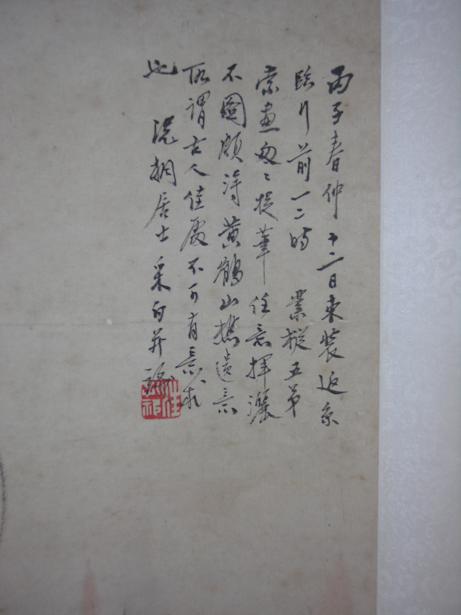 丙子春仲十二日束裝返京
臨行前一二時 業樅五弟
索畫匆匆提筆任意揮灑
不圖頗得黃鶴山樵遺意
所謂古人佳處不可有意求
也 洗桐居士采白並